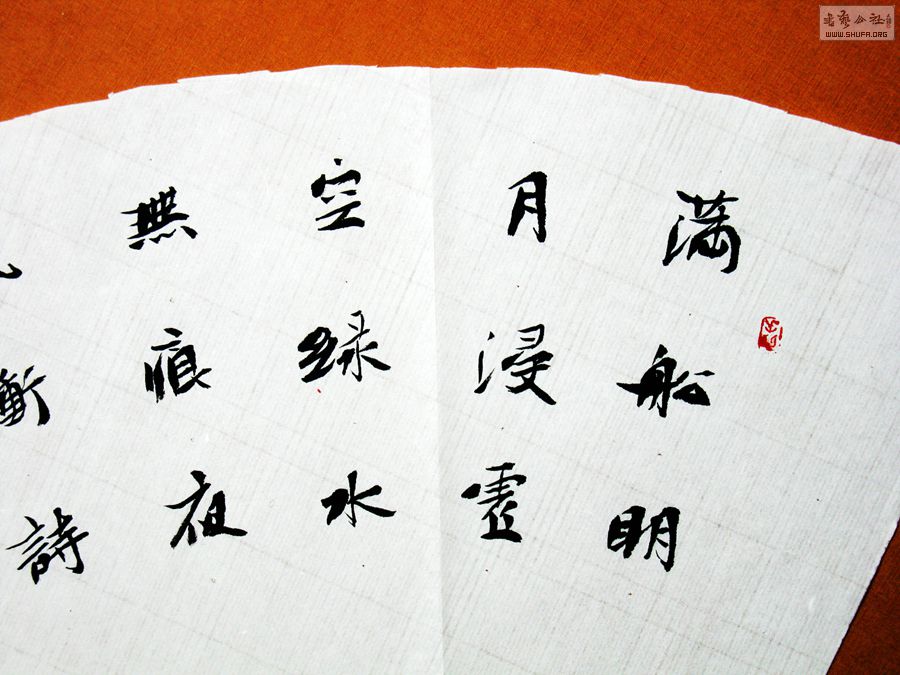 满船明
月浸虚
空绿水
無痕夜
衝詩
书艺公社
WWW.SHUFA.ORG